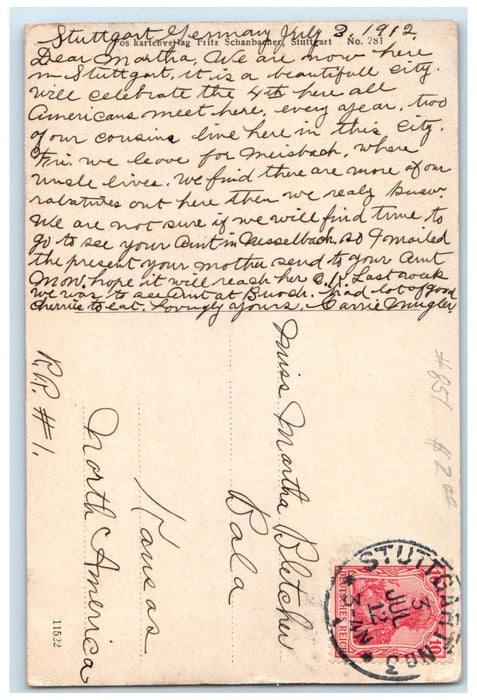 Stuttgart, Germany July 3, 1912
Postkartenverlag Fritz Schanbacher, Stuttgart No. 281
Dear Martha, We are now here
in Stuttgart, it is a beautifull city.
Will celebrate the 4th here all
Americans meet here, every year, two
of our cousins live here in this city.
Fri. we leave for Meisbach, where
uncle lives. We find there are more of our
relatives out here then we realy knew.
We are not sure if we will find time to
go to see your Aunt in Nesselbach, so I mailed
the present your mother send to your Aunt
now, hope it will reach her O.K. Last week
we was to see Aunt at Buoch. had lots of good
cherries to eat. Lovingly yours, Carrie Mugler
Miss Martha Bletcher
Bala
Kansas
North America
R.R. #1.
#851 #2
11522
STUTTGART No 3
3 JUL 12
3-4 N
10